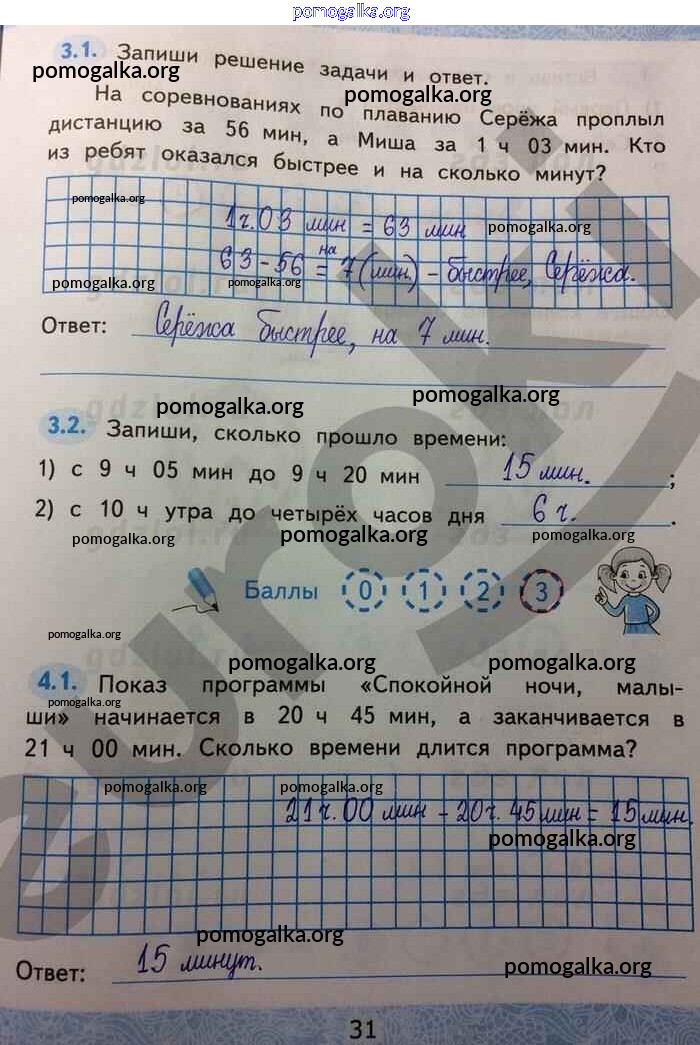 pomogalka.org
3.1. Запиши решение задачи и ответ.
pomogalka.org
pomogalka.org
На соревнованиях по плаванию Серёжа проплыл
дистанцию за 56 мин, а Миша за 1 ч 03 мин. Кто
из ребят оказался быстрее и на сколько минут?
pomogalka.org
1ч.03 мин = 63 мин
pomogalka.org
на
63 - 56 = 7 (мин.) - быстрее, Серёжа.
pomogalka.org
pomogalka.org
Ответ: Серёжа быстрее, на 7 мин.
pomogalka.org
pomogalka.org
3.2. Запиши, сколько прошло времени:
1) с 9 ч 05 мин до 9 ч 20 мин 15 мин. ;
2) с 10 ч утра до четырёх часов дня 6 ч. .
pomogalka.org
pomogalka.org
pomogalka.org
Баллы 0 1 2 3
pomogalka.org
pomogalka.org
pomogalka.org
4.1. Показ программы «Спокойной ночи, малы-
pomogalka.org
ши» начинается в 20 ч 45 мин, а заканчивается в
21 ч 00 мин. Сколько времени длится программа?
pomogalka.org
pomogalka.org
21ч.00 мин - 20ч.45мин = 15 мин.
pomogalka.org
pomogalka.org
Ответ: 15 минут.
pomogalka.org
31
euroki